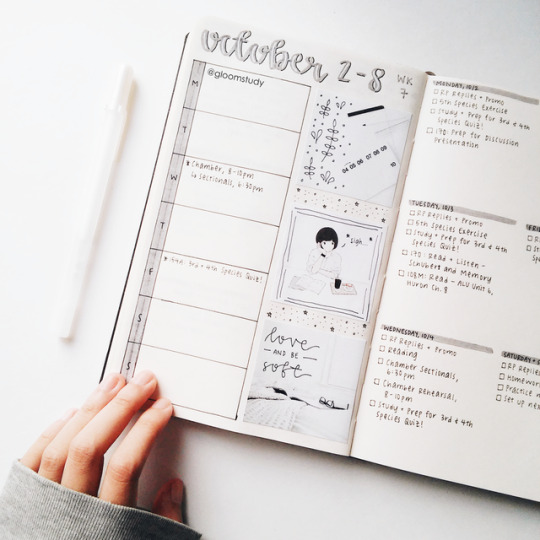 october 2-8
WK
7
@gloomstudy
M
T
W
T
F
S
S
★ Chamber, 8-10pm
↳ Sectionals, 6:30pm
★ 5th: 3rd + 4th Species Quiz!
04 05 06 07 08 09
10
sigh..
love
— AND BE —
safe
MONDAY, 10/2
□ RP Replies + Promo
□ 5th Species Exercise
□ Study + Prep for 3rd & 4th
Species Quiz!
□ 170: Prep for Discussion
Presentation
TUESDAY, 10/3
□ RP Replies + Promo
□ 5th Species Exercise
□ Study + Prep for 3rd & 4th
Species Quiz!
□ 170: Read + Listen -
Schubert and Memory
□ 108M: Read - ALU Unit 6,
Huron Ch. 8
WEDNESDAY, 10/4
□ RP Replies + Promo
□ Reading
□ Chamber Sectionals,
6:30pm
□ Chamber Rehearsal,
8-10pm
□ Study + Prep for 3rd & 4th
Species Quiz!
□ RP Replies
□ Homework
□ Practice
□ Set up